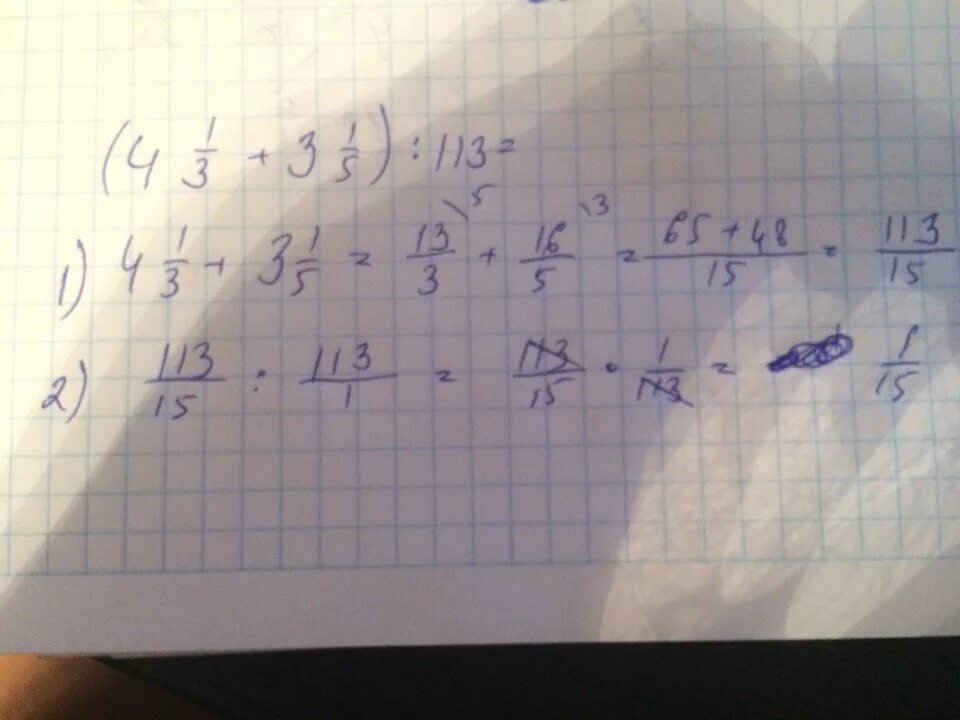 (4 1/3 + 3 1/5) : 113 =
1) 4 1/3 + 3 1/5 = 13/3 \5 + 16/5 \3 = 65 + 48/15 = 113/15
2) 113/15 : 113/1 = 113/15 · 1/113 = 1/15